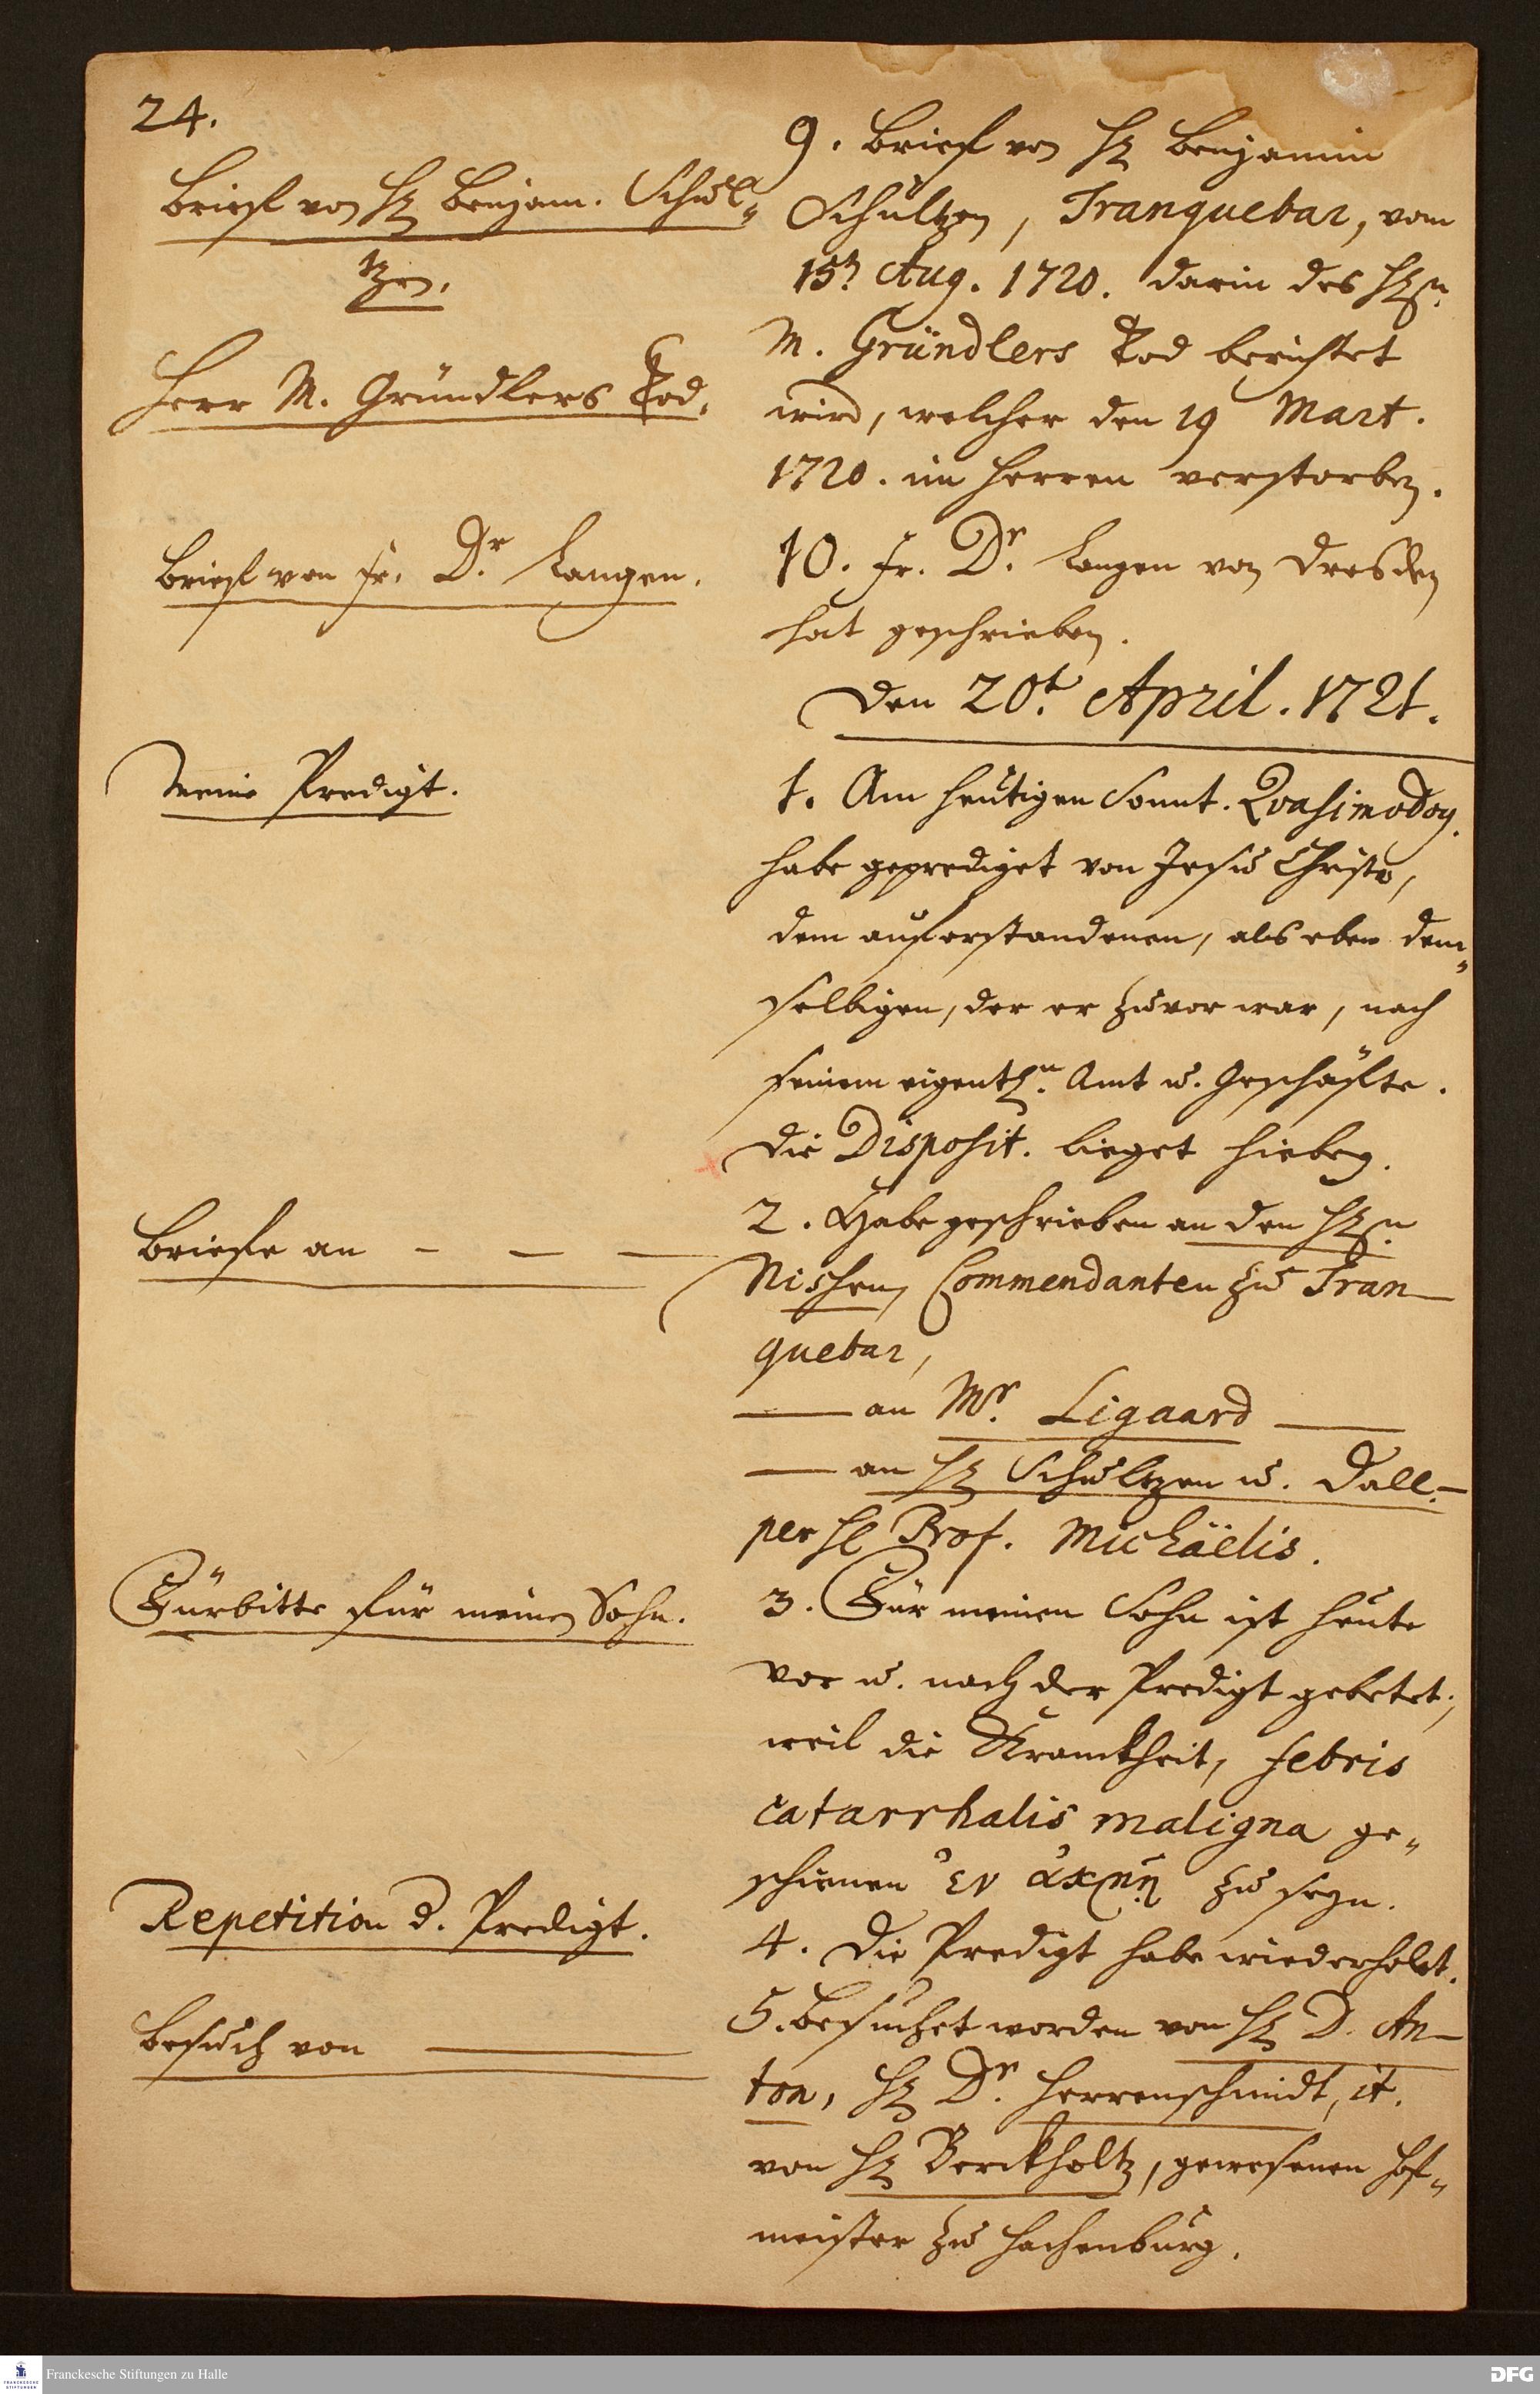 24.
Brief von H. Benjam. Schul-
tzen.
Herr M. Gründlers Tod.
Brief von Fr. Dr. Langen.
Meine Predigt.
Briefe an - - -
Fürbitte für meinen Sohn.
Repetition d. Predigt.
Besuch von
9. Brief von H. Benjamin
Schultzen, Tranquebar, vom
15t Aug. 1720. darin des Hrn.
M. Gründlers Tod berichtet
wird, welcher den 19 Mart.
1720. im Herren verstorben.
10. Fr. Dr. Langen von Dresden
hat geschrieben.
Den 20t. April. 1721.
1. Am heutigen Sonnt. Quasimodog.
habe geprediget von Jesu Christo,
dem auferstandenen, als eben dem-
selbigen, der er zuvor war, nach
seinem eigentln. Amt u. Geschäfte.
Die Disposit. lieget hiebey.
2. Habe geschrieben an den Hrn.
Nissen, Commendanten zu Tran-
quebar,
— an Mr. Ligaard —
— an H. Schultzen u. Dall.-
per H. Prof. Michäelis.
3. Für meinen Sohn ist heute
vor u. nach der Predigt gebetet;
weil die Kranckheit, febris
catarrhalis maligna ge-
schienen ἐν ἀκμῇ zu seyn.
4. Die Predigt habe wiederholet.
5. Besuchet worden von H. D. An-
ton, H. Dr. Herrenschmidt, it.
von H. Berckholtz, gewesenen Hof-
meister zu Hachenburg.
Franckesche Stiftungen zu Halle
DFG